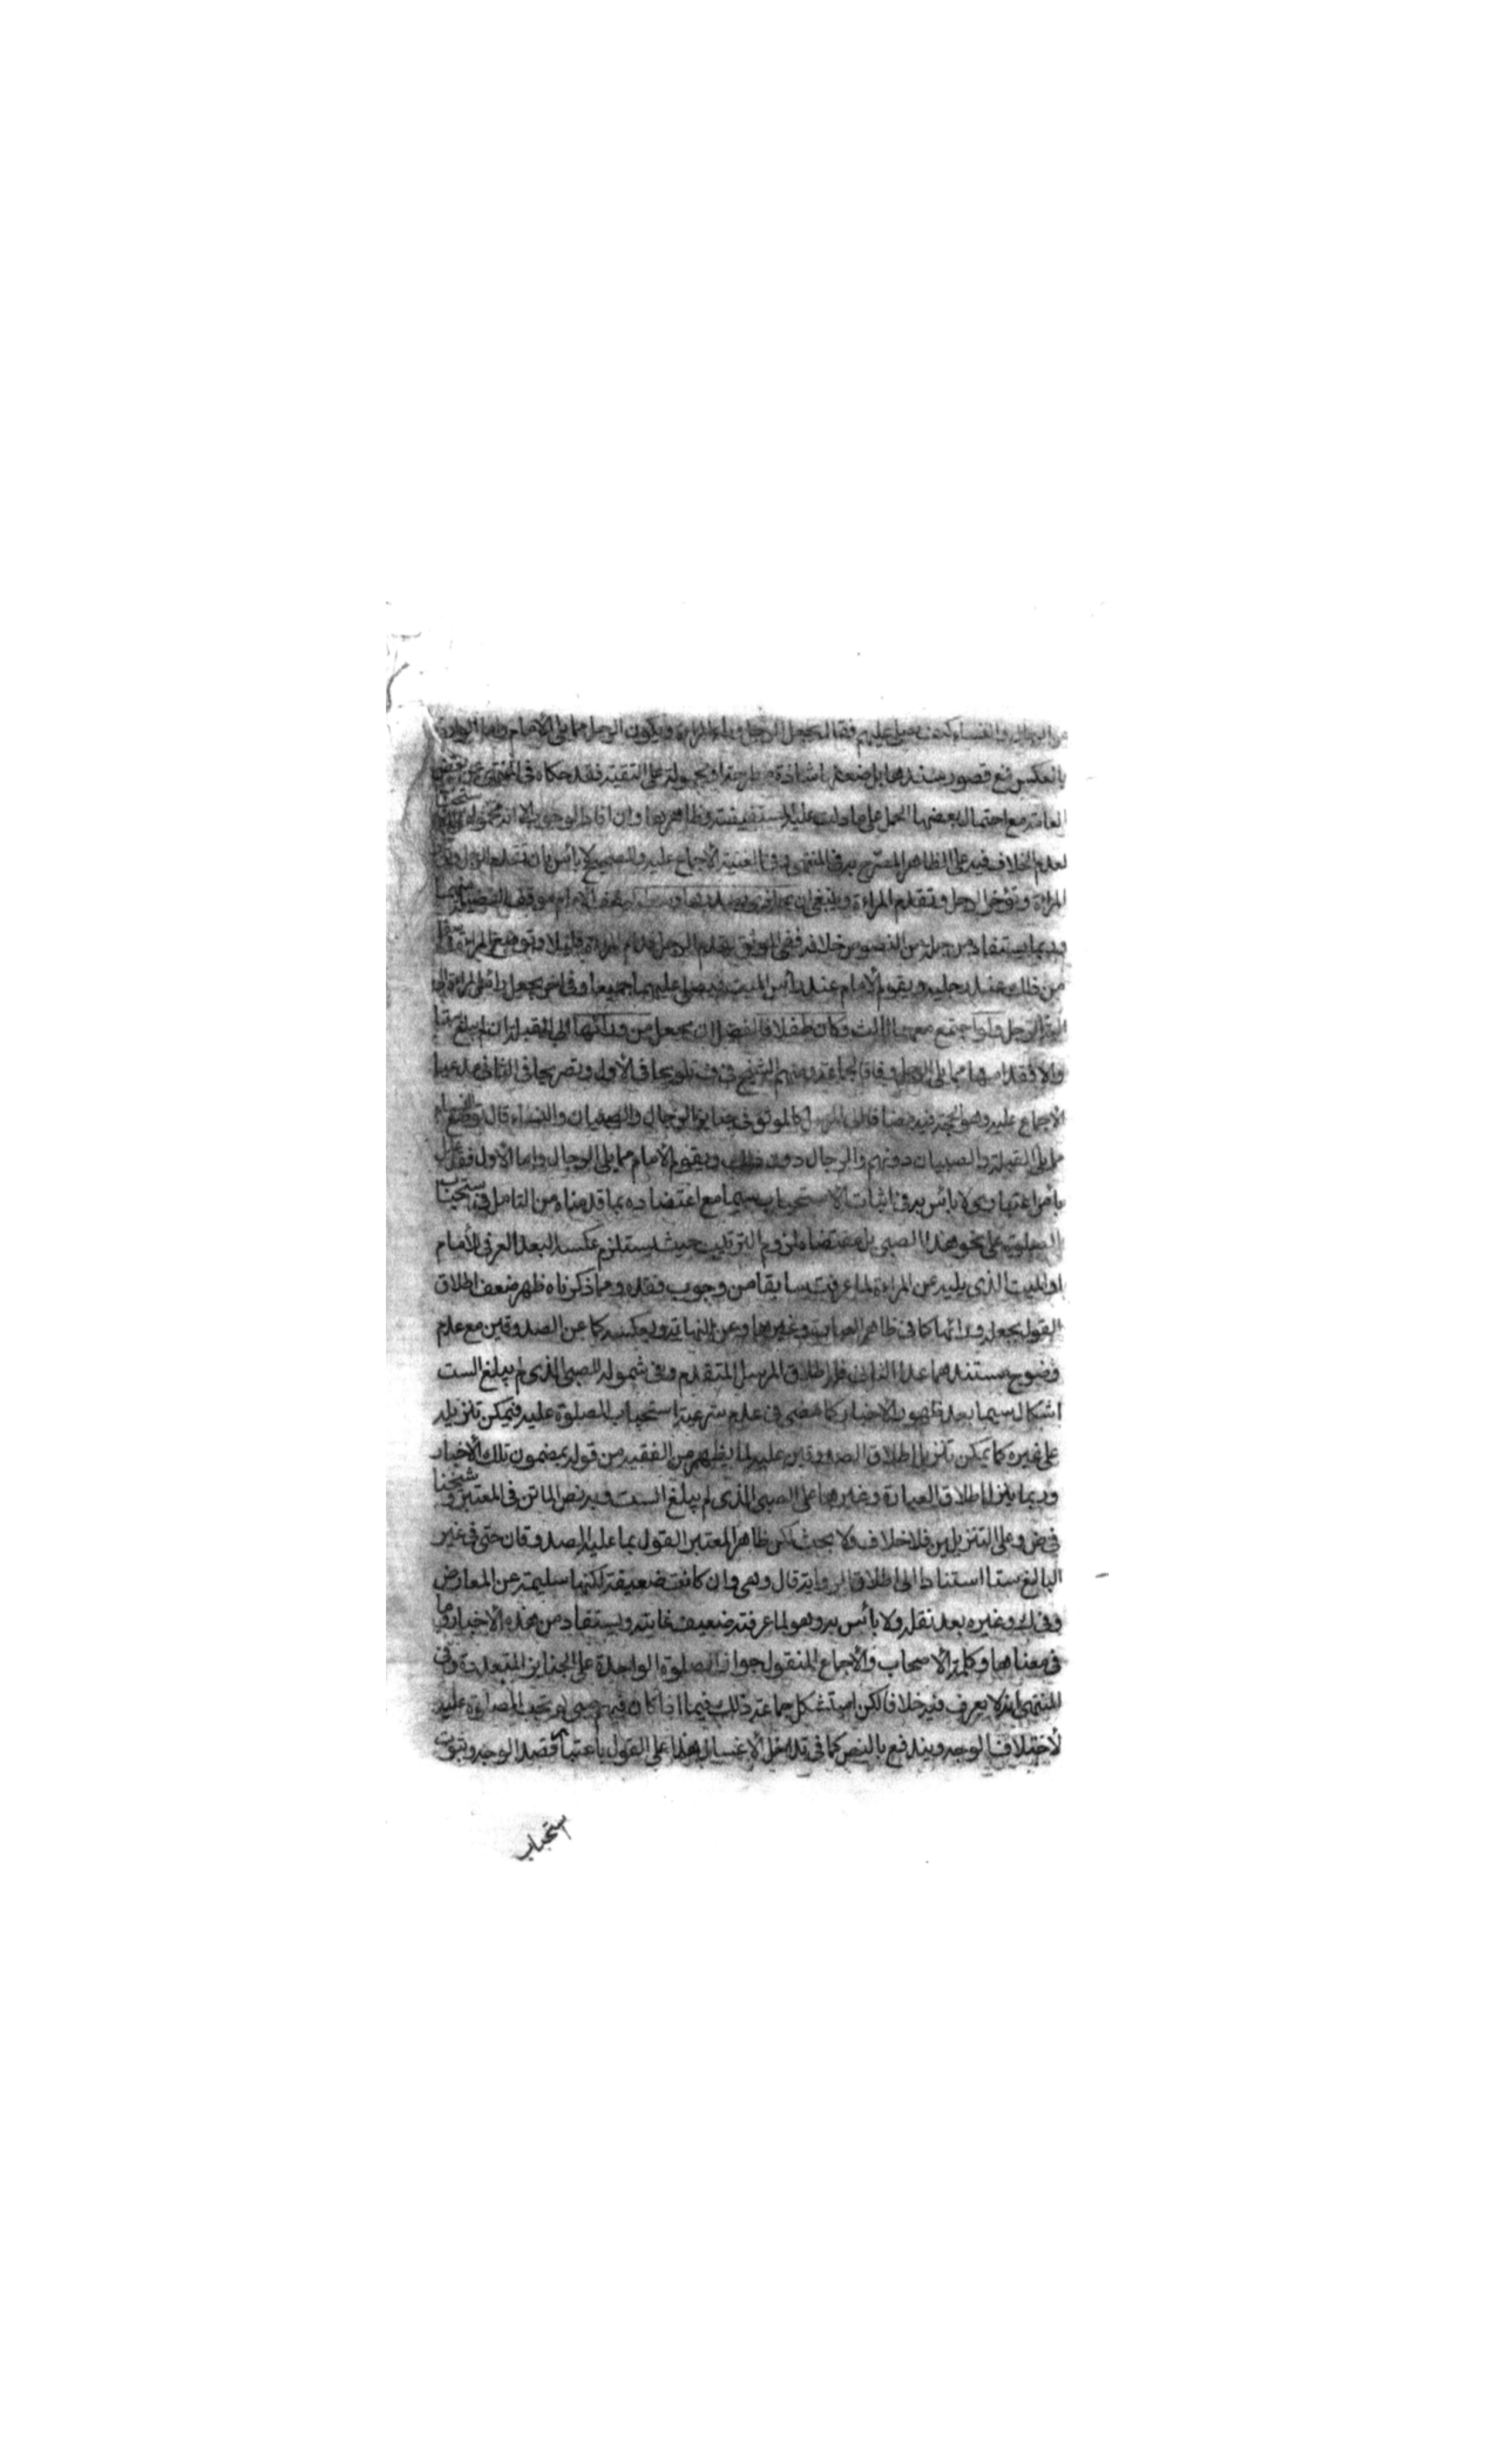 عن الرجال والنساء كيف يصلى عليهم فقال يجعل الرجل وراء المراة ويكون الرجل مما يلى الامام واما الواردة
بالعكس فمع قصور سندها بل ضعفها شاذة مطرحة او محمولة على التقية فقد حكاه فى المنتهى عن بعض
العامة مع احتمال بعضها الحمل على ما دلت عليه المستفيضة وظاهرها وان افاد الوجوب الا انه محمول على الاستحباب
لعدم الخلاف فيه على الظاهر المصرح به فى المنتهى وفى الغنية الاجماع عليه والصحيح لا باس بان تقدم الرجل وتؤخر
المراة وتؤخر الرجل وتقدم المراة وينبغى ان يحاذى بصدرها وسطه ليقف الامام موقف الفضيلة
وربما يستفاد من جملة من النصوص خلافه ففى الموثق يقدم الرجل قدام المراة قليلا وتوضع المراة اسفل
من ذلك عند رجليه ويقوم الامام عند راس الميت فيصلى عليهما جميعا وفى اخر يجعل راس المراة الى
الية الرجل ولو اجتمع معهما الثالث وكان طفلا فالفضل ان يجعل من ورائها الى القبلة ان لم يبلغ ستا
والا فقدامها مما يلى الرجل وفاقا لجماعة ومنهم الشيخ فى ف تلويحا فى الاول وتصريحا فى الثانى مدعيا
الاجماع عليه وهو الحجة فيه مضافا الى المرسل كالموثق فى جنايز الرجال والصبيان والنساء قال توضع النساء
مما يلى القبلة والصبيان دونهم والرجال دون ذلك ويقوم الامام مما يلى الرجال واما الاول فقد علل
بامر اعتبارى لا باس به فى اثبات الاستحباب سيما مع اعتضاده بما قدمناه من التامل فى استحباب
الصلوة على نحو هذا الصبى بل مقتضاه لزوم الترتيب حيث يستلزم عكسه البعد العرفى للامام
او الميت الذى يليه عن المراة لما عرفت سابقا من وجوب فقده ومما ذكرناه ظهر ضعف اطلاق
القول بجعله ورائها كما فى ظاهر العبارة وغيرها وعن النهاية وبعكسه كما عن الصدوقين مع عدم
وضوح مستندهما عدا الثانى فله اطلاق المرسل المتقدم وفى شموله للصبى الذى لم يبلغ الست
اشكال سيما بعد ظهور الاخبار كما مضى فى عدم شرعية استحباب الصلوة عليه فيمكن تنزيله
على غيره كما يمكن تنزيل اطلاق الصدوقين عليه لما يظهر من الفقيه من قوله بمضمون تلك الاخبار
وربما ينزل اطلاق العبارة وغيرها على الصبى الذى لم يبلغ الست وبه نص الماتن فى المعتبر وشيخنا
فى ض وعلى التنزيلين فلا خلاف ولا بحث لكن ظاهر المعتبر القول بما عليه الصدوقان حتى فى غير
البالغ ستا استنادا الى اطلاق الرواية قال وهى وان كانت ضعيفة لكنها سليمة عن المعارض
وفى ك وغيره بعد نقله ولا باس به وهو لما عرفته ضعيف غايته ويستفاد من هذه الاخبار وما
فى معناها وكلمة الاصحاب والاجماع المنقول جواز الصلوة الواحدة على الجنايز المتعددة وفى
المنتهى انه لا يعرف فيه خلافا لكن استشكل جماعة ذلك فيما اذا كان فيهم صبى لم تجب الصلوة عليه
لاختلاف الوجه ويندفع بالنص كما فى تداخل الاغسال هذا على القول باعتبار قصد الوجه وثبوت
استحباب